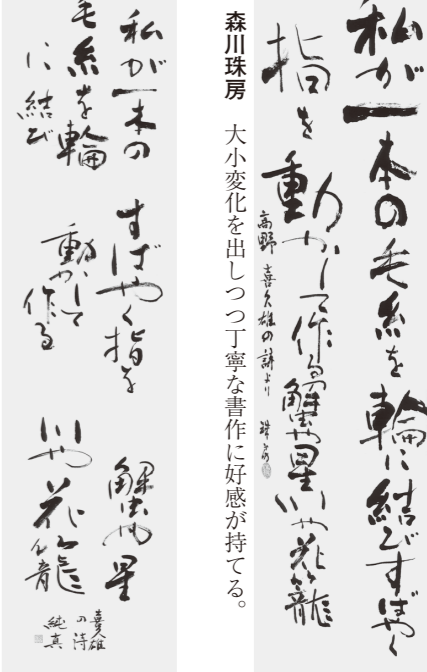 私が一本の毛糸を輪に結びすばやく
指を動かして作る蟹や星川や花籠
高野喜久雄の詩より 珠房
森川珠房 大小変化を出しつつ丁寧な書作に好感が持てる。
私が一本の
毛糸を輪
に結び
すばやく指を
動かして
作る
蟹や星
川や花籠
喜久雄
の詩
純真